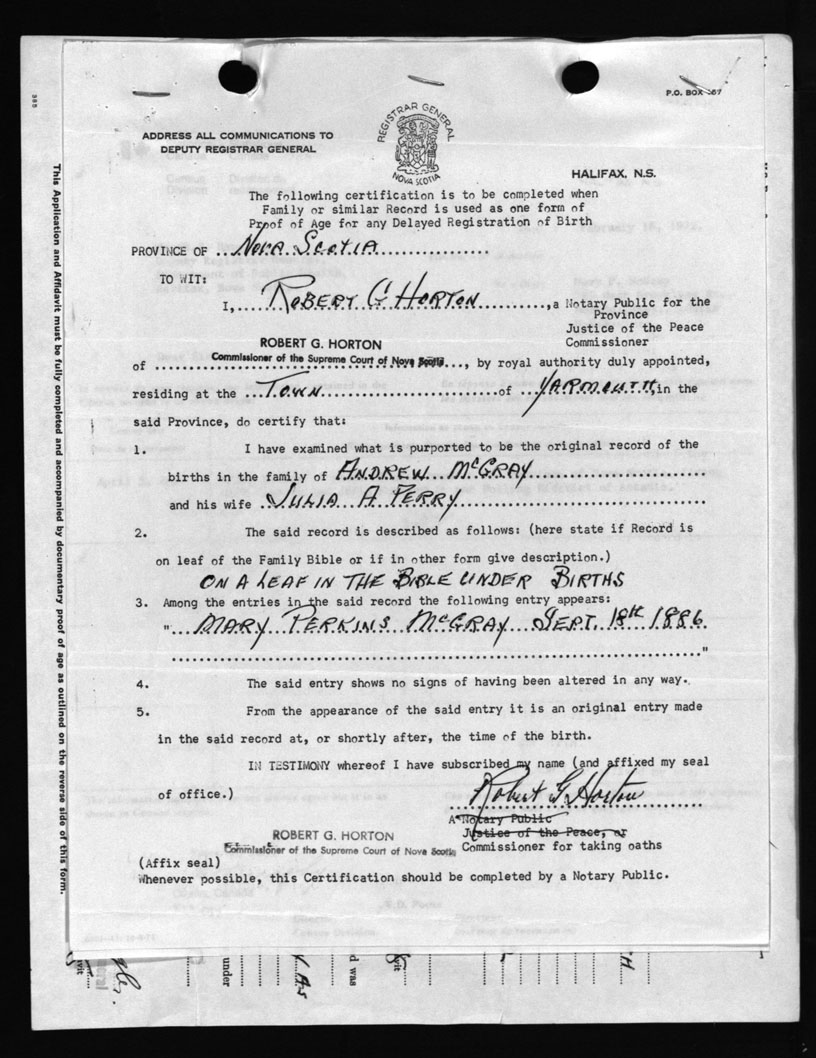 P.O. BOX
REGISTRAR GENERAL
NOVA SCOTIA
ADDRESS ALL COMMUNICATIONS TO
DEPUTY REGISTRAR GENERAL
HALIFAX, N.S.
The following certification is to be completed when
Family or similar Record is used as one form of
Proof of Age for any Delayed Registration of Birth
PROVINCE OF ..NOVA SCOTIA
TO WIT:
I, ROBERT G HORTON, a Notary Public for the
Province
Justice of the Peace
Commissioner
ROBERT G. HORTON
Commissioner of the Supreme Court of Nova Scotia
of ..., by royal authority duly appointed,
residing at the ...TOWN... of ..YARMOUTH, in the
said Province, do certify that:
1. I have examined what is purported to be the original record of the
births in the family of ANDREW McGRAY
and his wife ..JULIA A PERRY
2. The said record is described as follows: (here state if Record is
on leaf of the Family Bible or if in other form give description.)
ON A LEAF IN THE BIBLE UNDER BIRTHS
3. Among the entries in the said record the following entry appears:
"...MARY PERKINS McGRAY SEPT. 18th 1886.
"
4. The said entry shows no signs of having been altered in any way.
5. From the appearance of the said entry it is an original entry made
in the said record at, or shortly after, the time of the birth.
IN TESTIMONY whereof I have subscribed my name (and affixed my seal
of office.)
Robert G. Horton
A Notary Public
Justice of the Peace, or
Commissioner for taking oaths
ROBERT G. HORTON
Commissioner of the Supreme Court of Nova Scotia
(Affix seal)
Whenever possible, this Certification should be completed by a Notary Public.
This Application and Affidavit must be fully completed and accompanied by documentary proof of age as outlined on the reverse side of this form.
under
d was